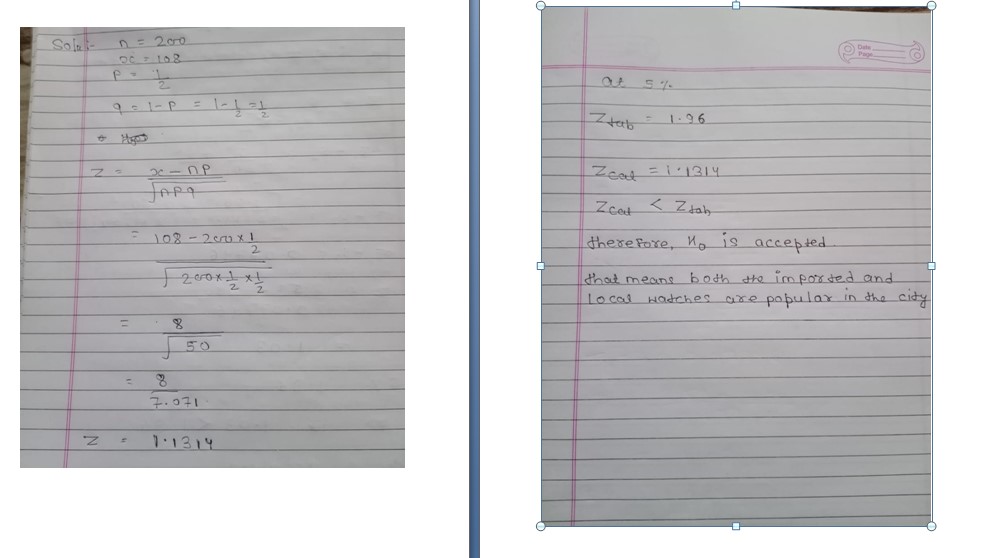 Soln:- n = 200
x = 108
P = 1/2
q = 1-P = 1-1/2 = 1/2
Z = x - np / √npq
= 108 - 200 × 1/2 / √200 × 1/2 × 1/2
= 8 / √50
= 8 / 7.071
Z = 1.1314
Date
Page
at 5%
Ztab = 1.96
Zcal = 1.1314
Zcal < Ztab
therefore, H₀ is accepted
that means both the imported and
local watches are popular in the city